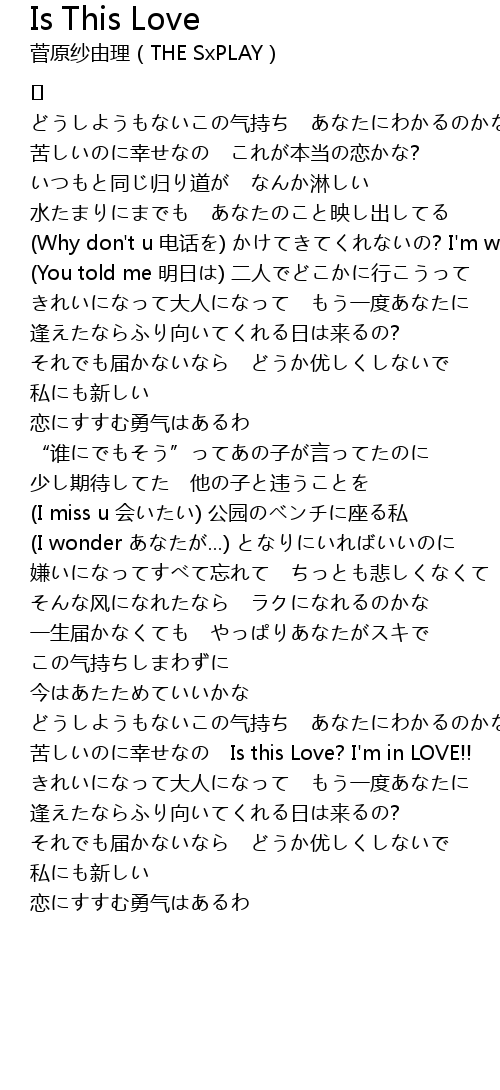 Is This Love
菅原纱由理 ( THE SxPLAY )
[]
どうしようもないこの气持ち　あなたにわかるのかな
苦しいのに幸せなの　これが本当の恋かな?
いつもと同じ归り道が　なんか淋しい
水たまりにまでも　あなたのこと映し出してる
(Why don't u 电话を) かけてきてくれないの? I'm w
(You told me 明日は) 二人でどこかに行こうって
きれいになって大人になって　もう一度あなたに
逢えたならふり向いてくれる日は来るの?
それでも届かないなら　どうか优しくしないで
私にも新しい
恋にすすむ勇气はあるわ
“谁にでもそう”ってあの子が言ってたのに
少し期待してた　他の子と违うことを
(I miss u 会いたい) 公园のベンチに座る私
(I wonder あなたが...) となりにいればいいのに
嫌いになってすべて忘れて　ちっとも悲しくなくて
そんな风になれたなら　ラクになれるのかな
一生届かなくても　やっぱりあなたがスキで
この气持ちしまわずに
今はあたためていいかな
どうしようもないこの气持ち　あなたにわかるのかな
苦しいのに幸せなの　Is this Love? I'm in LOVE!!
きれいになって大人になって　もう一度あなたに
逢えたならふり向いてくれる日は来るの?
それでも届かないなら　どうか优しくしないで
私にも新しい
恋にすすむ勇气はあるわ